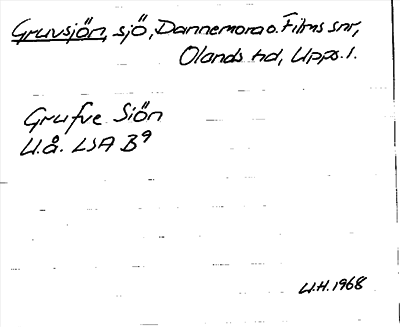 Gruvsjön, sjö, Dannemora o. Films snr,
Olands hd, Upps. l.
Grufve Siön
U.å. LSA B9
U.H. 1968